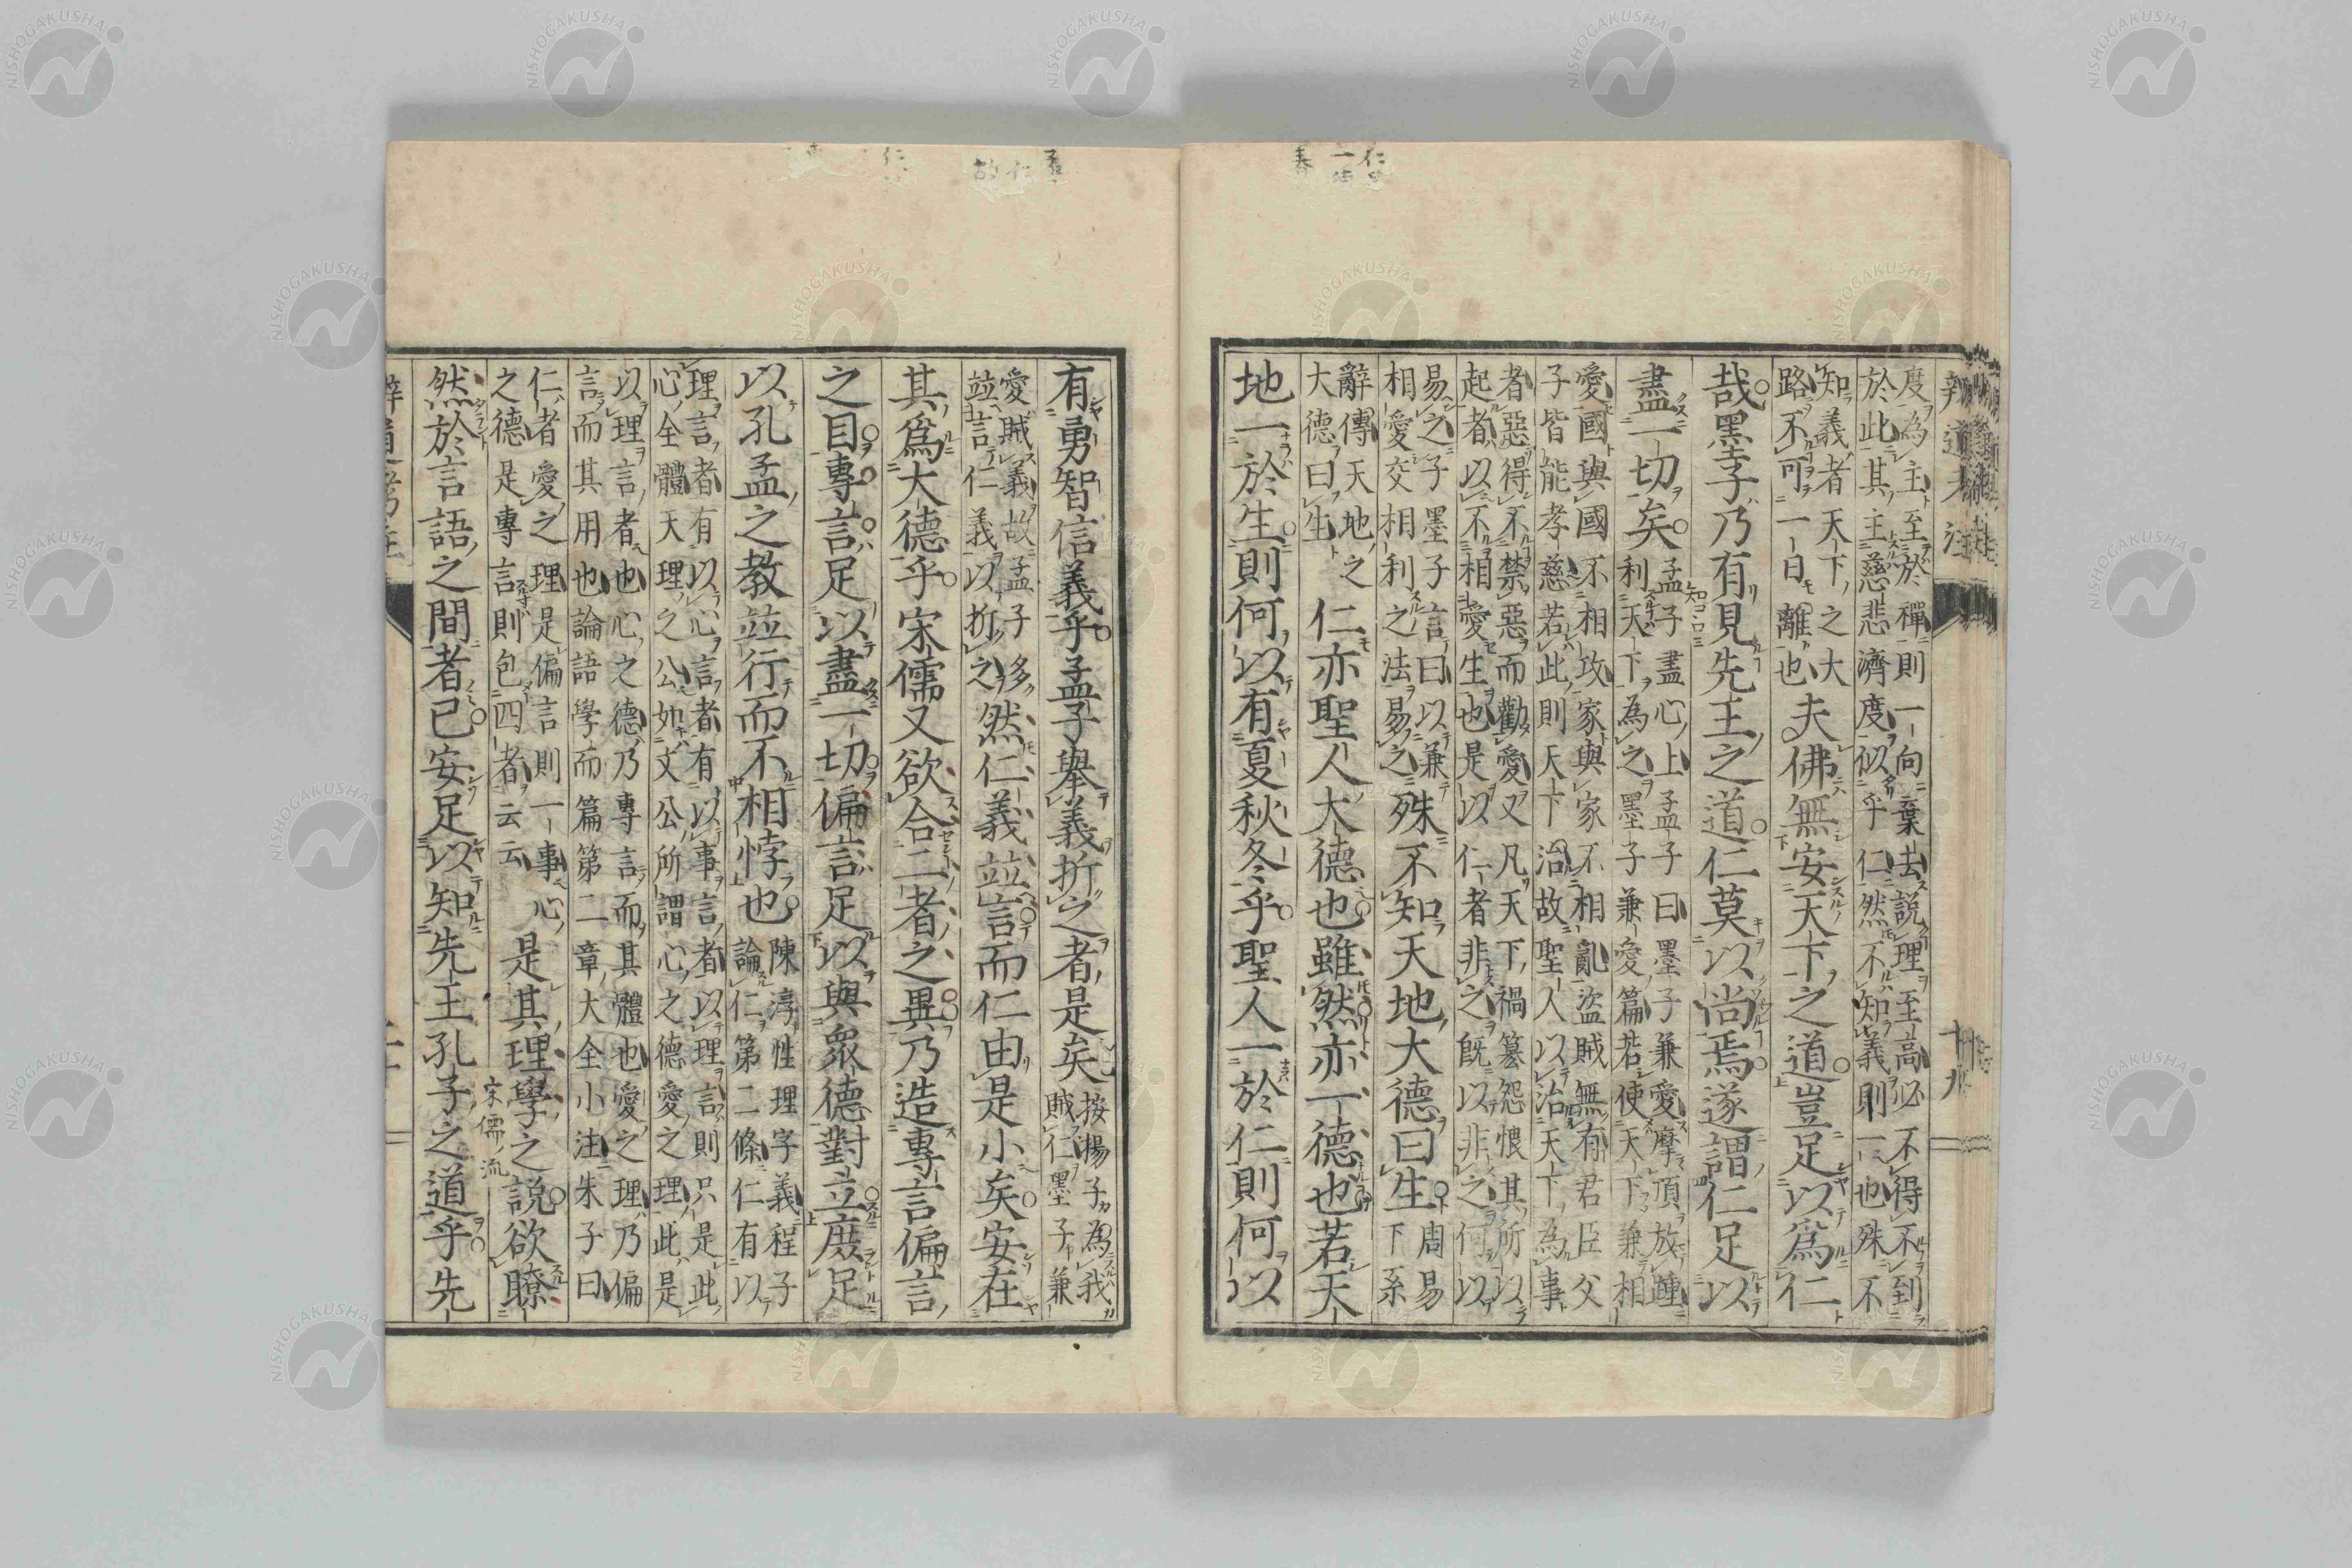 辨道考注
十九
度為主至於禪則一向棄去説理至高必不得不到
於此其主慈悲濟度似乎仁然不知義則一也殊不
知義者天下之大
路不可一日離也
夫佛無安天下之道豈足以爲仁
哉墨子乃有見先王之道仁莫以尚焉遂謂仁足以
盡一切矣
孟子盡心上孟子曰墨子兼愛摩頂放踵
利天下為之墨子兼愛篇若使天下兼相
愛國與國不相攻家與家不相亂盜賊無有君臣父
子皆能孝慈若此則天下治故聖人以治天下為事
者惡得不禁惡而勸愛又凡天下禍篡怨恨其所以
起者以不相愛生也是以仁者非之既以非之何以
易之子墨子言曰以兼
相愛交相利之法易之
殊不知天地大德曰生
周易
下系
辭傳天地之
大德曰生
仁亦聖人大德也雖然亦一德也若天
地一於生則何以有夏秋冬乎聖人一於仁則何以
有勇智信義乎孟子舉義折之者是矣
按楊子為我
賊仁墨子兼
愛賊義故孟子多
竝言仁義以折之
然仁義竝言而仁由是小矣安在
其爲大德乎宋儒又欲合二者之異乃造專言偏言
之目專言足以盡一切偏言足以與衆德對立庶足
以孔孟之教竝行而不相悖也
陳淳性理字義程子
論仁第二條仁有以
理言者有以心言者有以事言者以理言則只是此
心全體天理之公如文公所謂心之德愛之理此是
以理言者也心之德乃專言而其體也愛之理乃偏
言而其用也論語學而篇第二章大全小注朱子曰
仁者愛之理是偏言則一事心
之德是專言則包四者云云
是其理學之説欲瞭
宋儒ノ流
然於言語之間者已安足以知先王孔子之道乎先
NISHOGAKUSHA